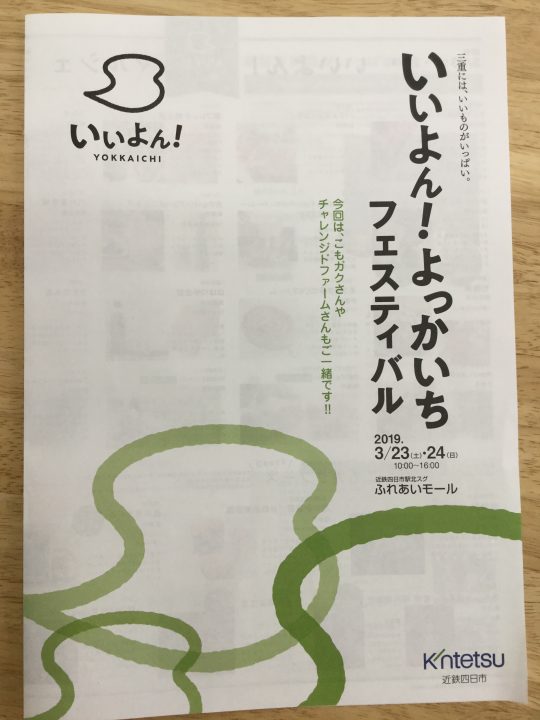 三重には、いいものがいっぱい。
いいよん！よっかいち
フェスティバル
いいよん！
YOKKAICHI
今回は、こもガクさんや
チャレンジドファームさんもご一緒です!!
2019.
3/23(土)・24(日)
10:00~16:00
近鉄四日市駅北スグ
ふれあいモール
Kintetsu
近鉄四日市